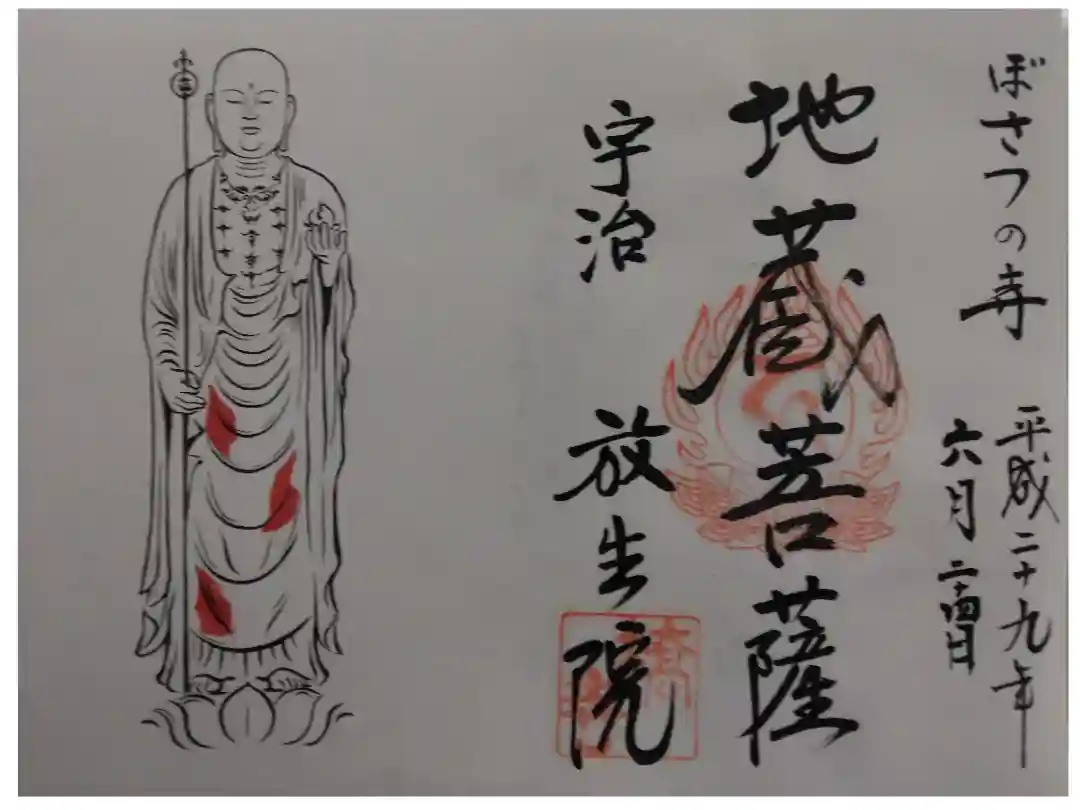 ぼさつの寺
平成二十九年
六月二十四日
地蔵菩薩
宇治
放生院